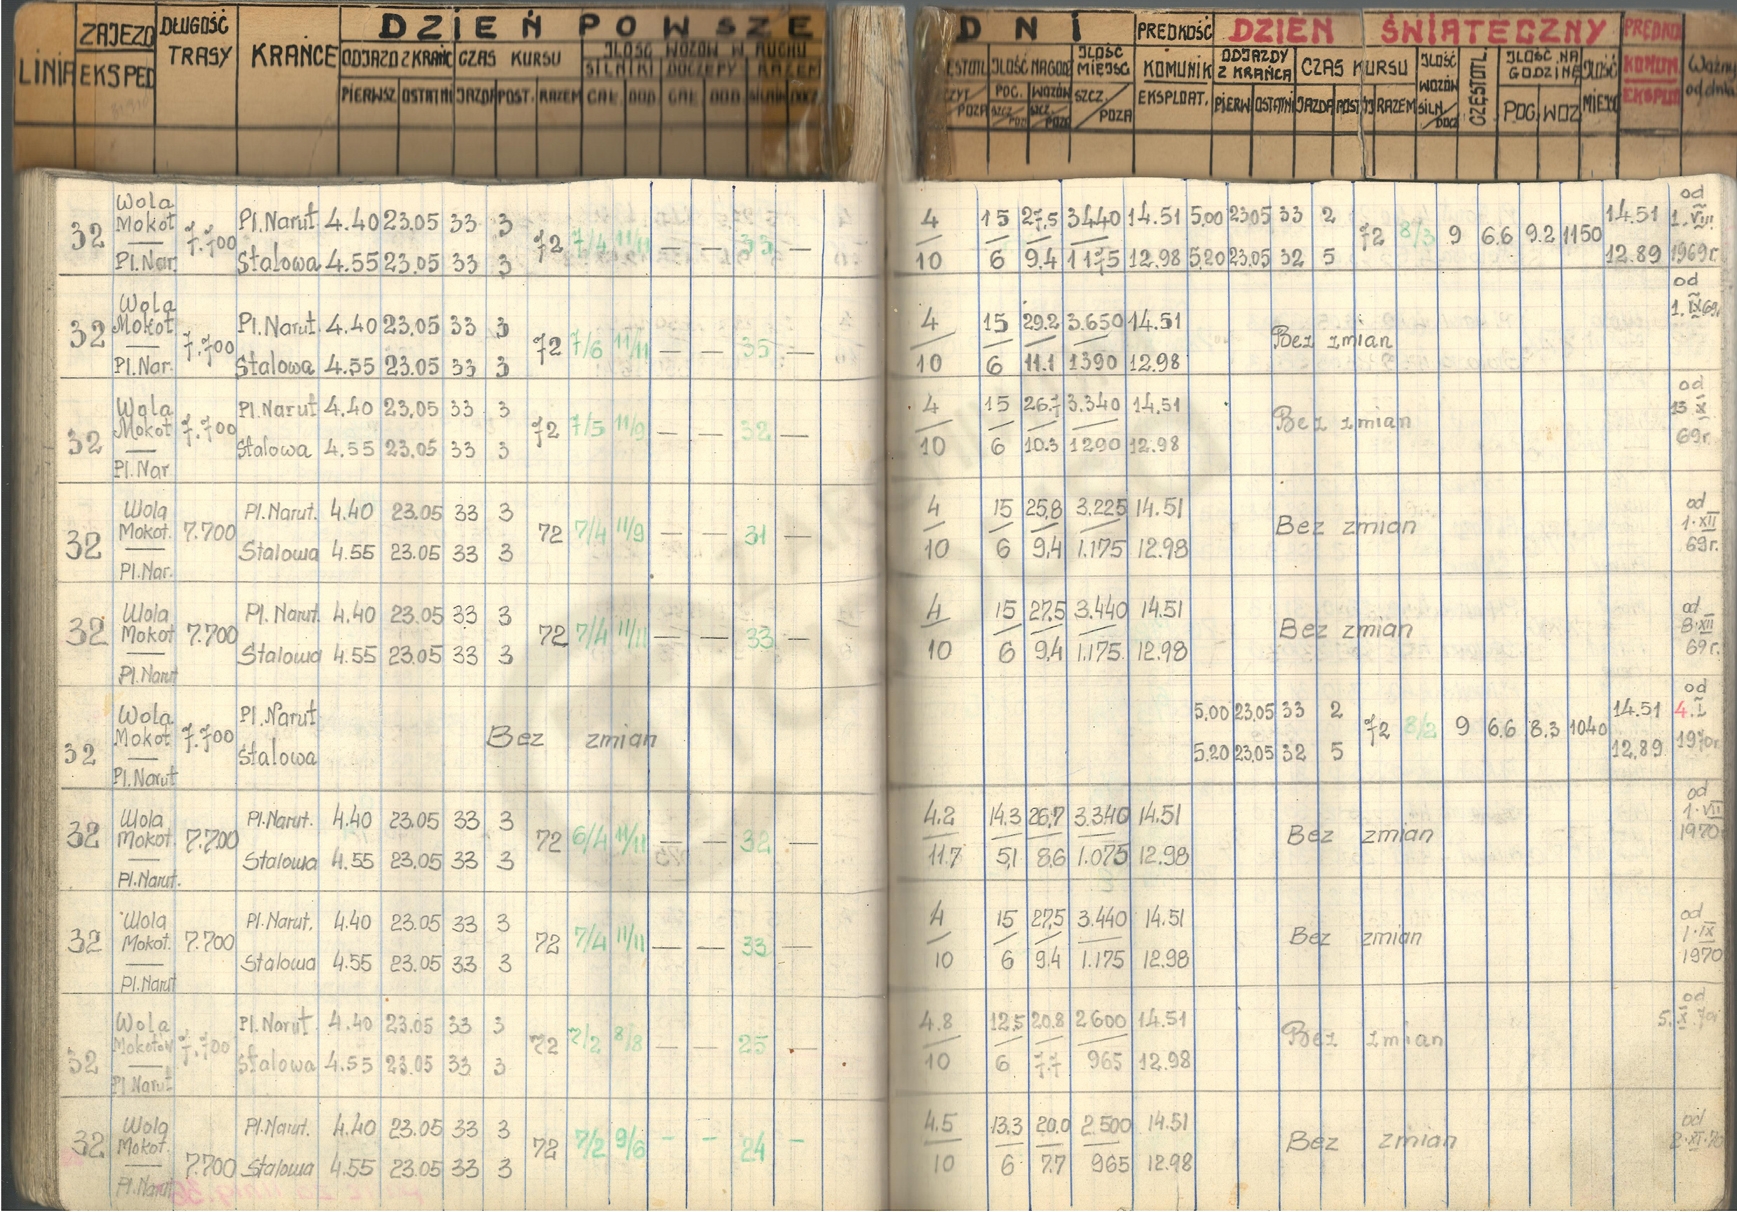 DZIEŃ POWSZE DNI
DZIEŃ ŚWIATECZNY
LINIA
ZAJEZD
EKSPED
DŁUGOŚĆ
TRASY
KRAŃCE
ODJAZD Z KRAŃC
PIERWSZ. OSTATNI
CZAS KURSU
JAZDA POST. RAZEM
ILOŚĆ WOZÓW W RUCHU
SILNIKI DOCZEPY RAZEM
CAŁ. DOD. CAŁ. DOD.
ILOŚĆ NA GODZ
POC. WOZÓW
SZCZ. POZA
ILOŚĆ
MIEJSC
SZCZ.
POZA
PREDKOŚĆ
KOMUNIK
EKSPLOAT.
ODJAZDY
Z KRAŃCA
PIERW OSTATNI
CZAS KURSU
JAZDA POST RAZEM
ILOŚĆ
WOZÓW
SILN
DOCZ
CZĘSTOTL
ILOŚĆ NA
GODZINE
POC. WOZ
ILOŚĆ
MIEJSC
PRĘDKO
KOMUN.
EKSPLO
Ważny
od dnia
32 Wola Mokot Pl.Nar. 7.700
Pl.Narut 4.40 23.05 33 3
Stalowa 4.55 23.05 33 3
72 7/4 11/11 — — 33 —
4 15 27,5 3440 14.51 5,00 23,05 33 2
10 6 9.4 1175 12.98 5,20 23,05 32 5
72 8/3 9 6.6 9.2 1150 14.51 12.89
od 1.VIII. 1969r.
32 Wola Mokot Pl.Nar. 7.700
Pl.Narut 4.40 23.05 33 3
Stalowa 4.55 23.05 33 3
72 7/6 11/11 — — 35 —
4 15 29.2 3.650 14.51
10 6 11.1 1390 12.98
Bez zmian
od 1.IX 69.
32 Wola Mokot Pl.Nar 7.700
Pl.Narut 4.40 23,05 33 3
Stalowa 4.55 23.05 33 3
72 7/5 11/9 — — 32 —
4 15 26.7 3.340 14.51
10 6 10.3 1290 12.98
Bez zmian
od 13 X 69r.
32 Wola Mokot. Pl.Nar. 7.700
Pl.Narut. 4.40 23.05 33 3
Stalowa 4.55 23.05 33 3
72 7/4 11/9 — — 31 —
4 15 25,8 3.225 14.51
10 6 9,4 1.175 12.98
Bez zmian
od 1.XII 69r.
32 Wola Mokot Pl.Narut 7.700
Pl.Narut. 4.40 23.05 33 3
Stalowa 4.55 23.05 33 3
72 7/4 11/11 — — 33 —
4 15 27,5 3.440 14.51
10 6 9,4 1.175. 12.98
Bez zmian
od 8.XII 69r.
32 Wola Mokot Pl.Narut 7.700
Pl.Narut
Stalowa
Bez zmian
5,00 23,05 33 2
5.20 23,05 32 5
72 8/2 9 6.6 8.3 1040 14.51 12.89
od 4.I 1970r.
32 Wola Mokot. Pl.Narut. 7.700
Pl.Narut. 4.40 23.05 33 3
Stalowa 4.55 23.05 33 3
72 6/4 11/11 — — 32 —
4.2 14.3 26,7 3.340 14.51
11.7 5,1 8,6 1.075 12.98
Bez zmian
od 1.VII 1970
32 Wola Mokot. Pl.Narut 7.700
Pl.Narut. 4.40 23.05 33 3
Stalowa 4.55 23.05 33 3
72 7/4 11/11 — — 33 —
4 15 27,5 3.440 14.51
10 6 9.4 1.175 12.98
Bez zmian
od 1.IX 1970
32 Wola Mokotów Pl Narut 7.700
Pl.Narut 4.40 23.05 33 3
Stalowa 4.55 23.05 33 3
72 7/2 8/8 — — 25 —
4.8 12,5 20.8 2600 14.51
10 6 7.7 965 12.98
Bez zmian
od
32 Wola Mokot. Pl.Narut 7.700
Pl.Narut. 4.40 23.05 33 3
Stalowa 4.55 23.05 33 3
72 7/2 9/6 - - 24 -
4.5 13.3 20.0 2.500 14.51
10 6 7.7 965 12.98
Bez zmian
od 2.XI.70